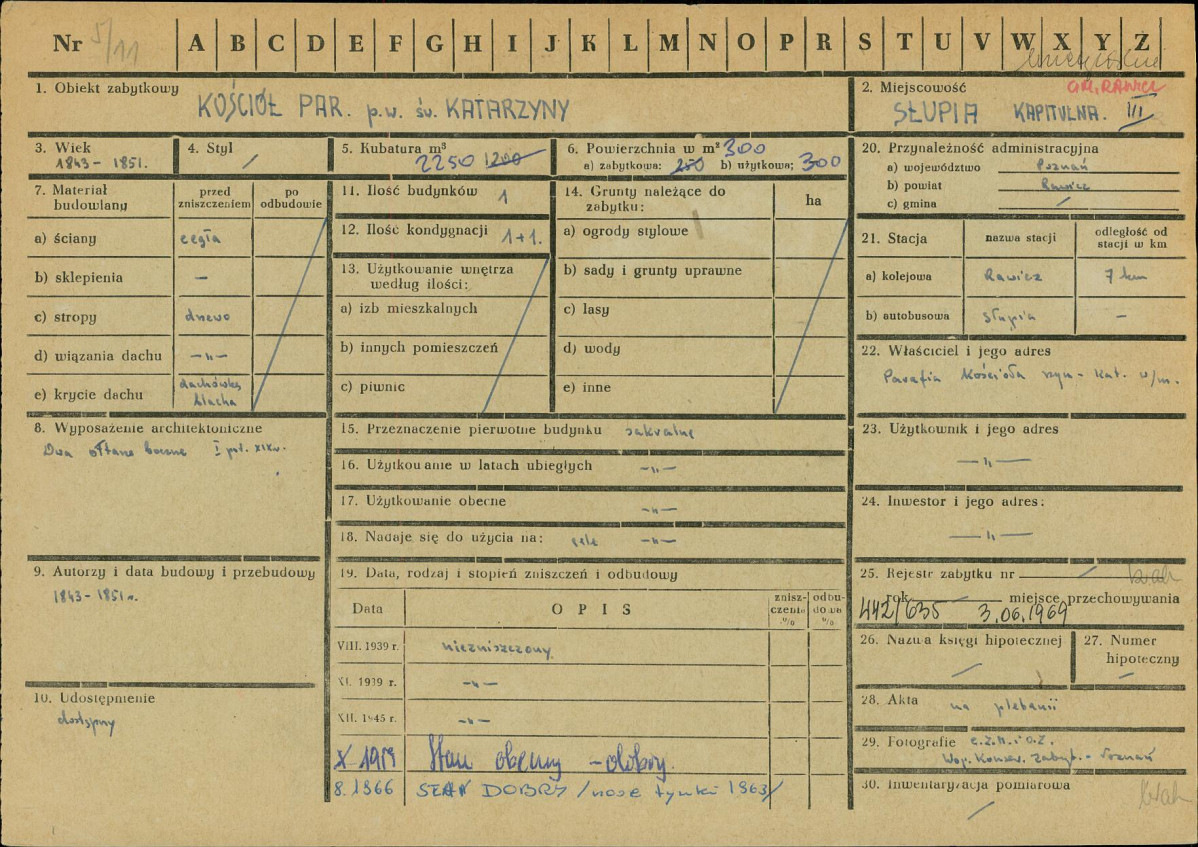 Nr 5/11 A B C D E F G H I J K L M N O P R S T U V W X Y Z
1. Obiekt zabytkowy
KOŚCIÓŁ PAR. p.w. św. KATARZYNY
2. Miejscowość GM. RAWICZ
SŁUPIA KAPITULNA. III
3. Wiek
1843 - 1851.
4. Styl
/
5. Kubatura m³
2250 1200
6. Powierzchnia w m² 300
a) zabytkowa: 250 b) użytkowa; 300
20. Przynależność administracyjna
a) województwo Poznań
b) powiat Rawicz
c) gmina /
7. Materiał budowlany
przed zniszczeniem
po odbudowie
a) ściany cegła
b) sklepienia —
c) stropy drewo
d) wiązania dachu —„—
e) krycie dachu dachówka blacha
11. Ilość budynków 1
12. Ilość kondygnacji 1+1.
13. Użytkowanie wnętrza
według ilości:
a) izb mieszkalnych
b) innych pomieszczeń
c) piwnic
14. Grunty należące do
zabytku:
ha
a) ogrody stylowe
b) sady i grunty uprawne
c) lasy
d) wody
e) inne
21. Stacja
nazwa stacji
odległość od
stacji w km
a) kolejowa Rawicz 7 km
b) autobusowa Słupia —
22. Właściciel i jego adres
Parafia Kościoła rzym - kat. w/m.
8. Wyposażenie architektoniczne
Dwa ołtarze boczne I poł. XIX w.
15. Przeznaczenie pierwotne budynku sakralne
16. Użytkowanie w latach ubiegłych —„—
17. Użytkowanie obecne —„—
18. Nadaje się do użycia na: cele —„—
23. Użytkownik i jego adres
—„—
24. Inwestor i jego adres:
—„—
9. Autorzy i data budowy i przebudowy
1843 - 1851 r.
19. Data, rodzaj i stopień zniszczeń i odbudowy
Data
OPIS
znisz-
czenie
%
odbu-
dowa
%
VIII. 1939 r. niezniszczony.
XI. 1939 r. —„—
XII. 1945 r. —„—
X 1959 Stan obecny - dobry.
8. 1966 STAN DOBRY /nowe tynki 1963/
25. Rejestr zabytku nr / brak
rok miejsce przechowywania
442/635 3.06.1969
26. Nazwa księgi hipotecznej
/
27. Numer
hipoteczny
—
10. Udostępnienie
dostępny
28. Akta na plebanii
29. Fotografie C.Z.M. i O.Z.
Woj. Konserw. Zabyt. - Poznań
30. Inwentaryzacja pomiarowa
/ brak